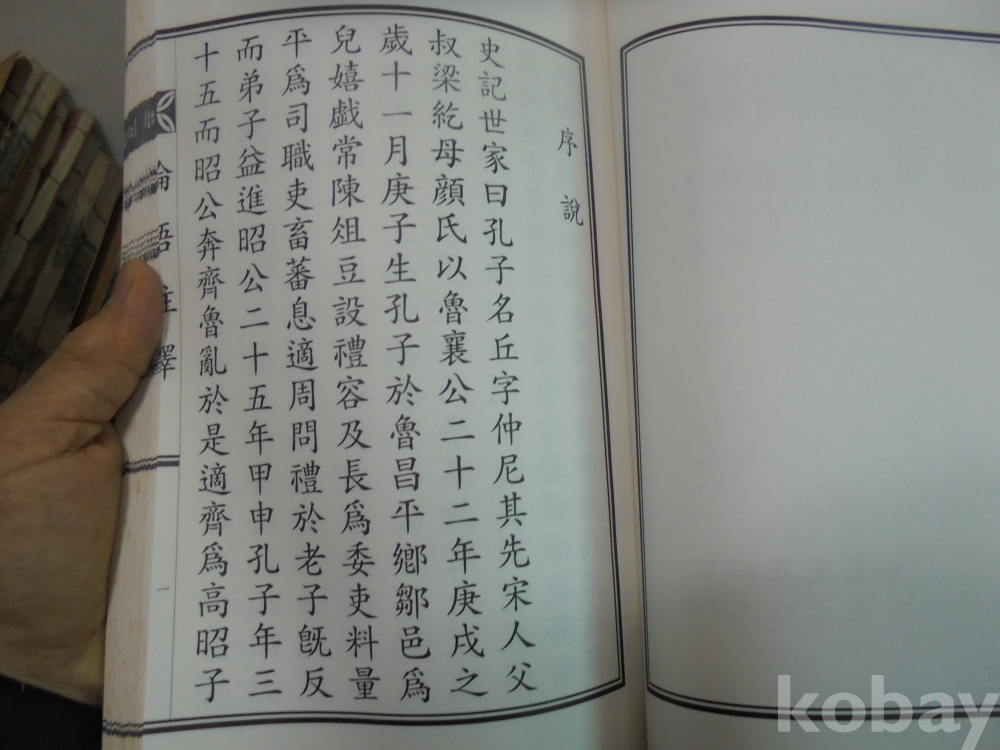 序說
史記世家曰孔子名丘字仲尼其先宋人父
叔梁紇母顔氏以魯襄公二十二年庚戌之
歲十一月庚子生孔子於魯昌平鄉鄒邑爲
兒嬉戲常陳俎豆設禮容及長爲委吏料量
平爲司職吏畜蕃息適周問禮於老子旣反
而弟子益進昭公二十五年甲申孔子年三
十五而昭公奔齊魯亂於是適齊爲高昭子
論語註譯
一
kobay